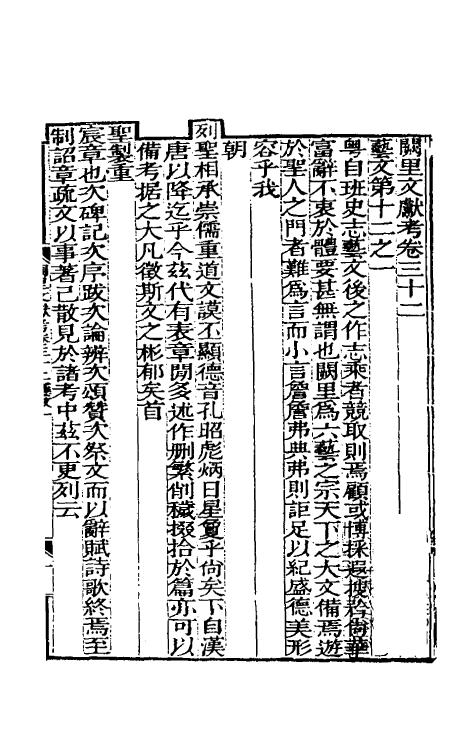 闕里文獻考卷三十二
藝文第十二之一
粤自班史志藝文後之作志乘者競取則焉顧或博採遐搜矜尙華
富辭不衷於體要甚無謂也闕里爲六藝之宗天下之大文備焉遊
於聖人之門者難爲言而小言詹詹弗典弗則詎足以紀盛德美形
容乎我
朝
列聖相承崇儒重道文謨丕顯德音孔昭彪炳日星夐乎尙矣下自漢
唐以降迄乎今茲代有表章閒多述作刪繁削穢掇拾於篇亦可以
備考据之大凡徵斯文之彬郁矣首
聖製重
宸章也次碑記次序跋次論辨次頌贊次祭文而以辭賦詩歌終焉至
制詔章疏文以事著已散見於諸考中茲不更列云